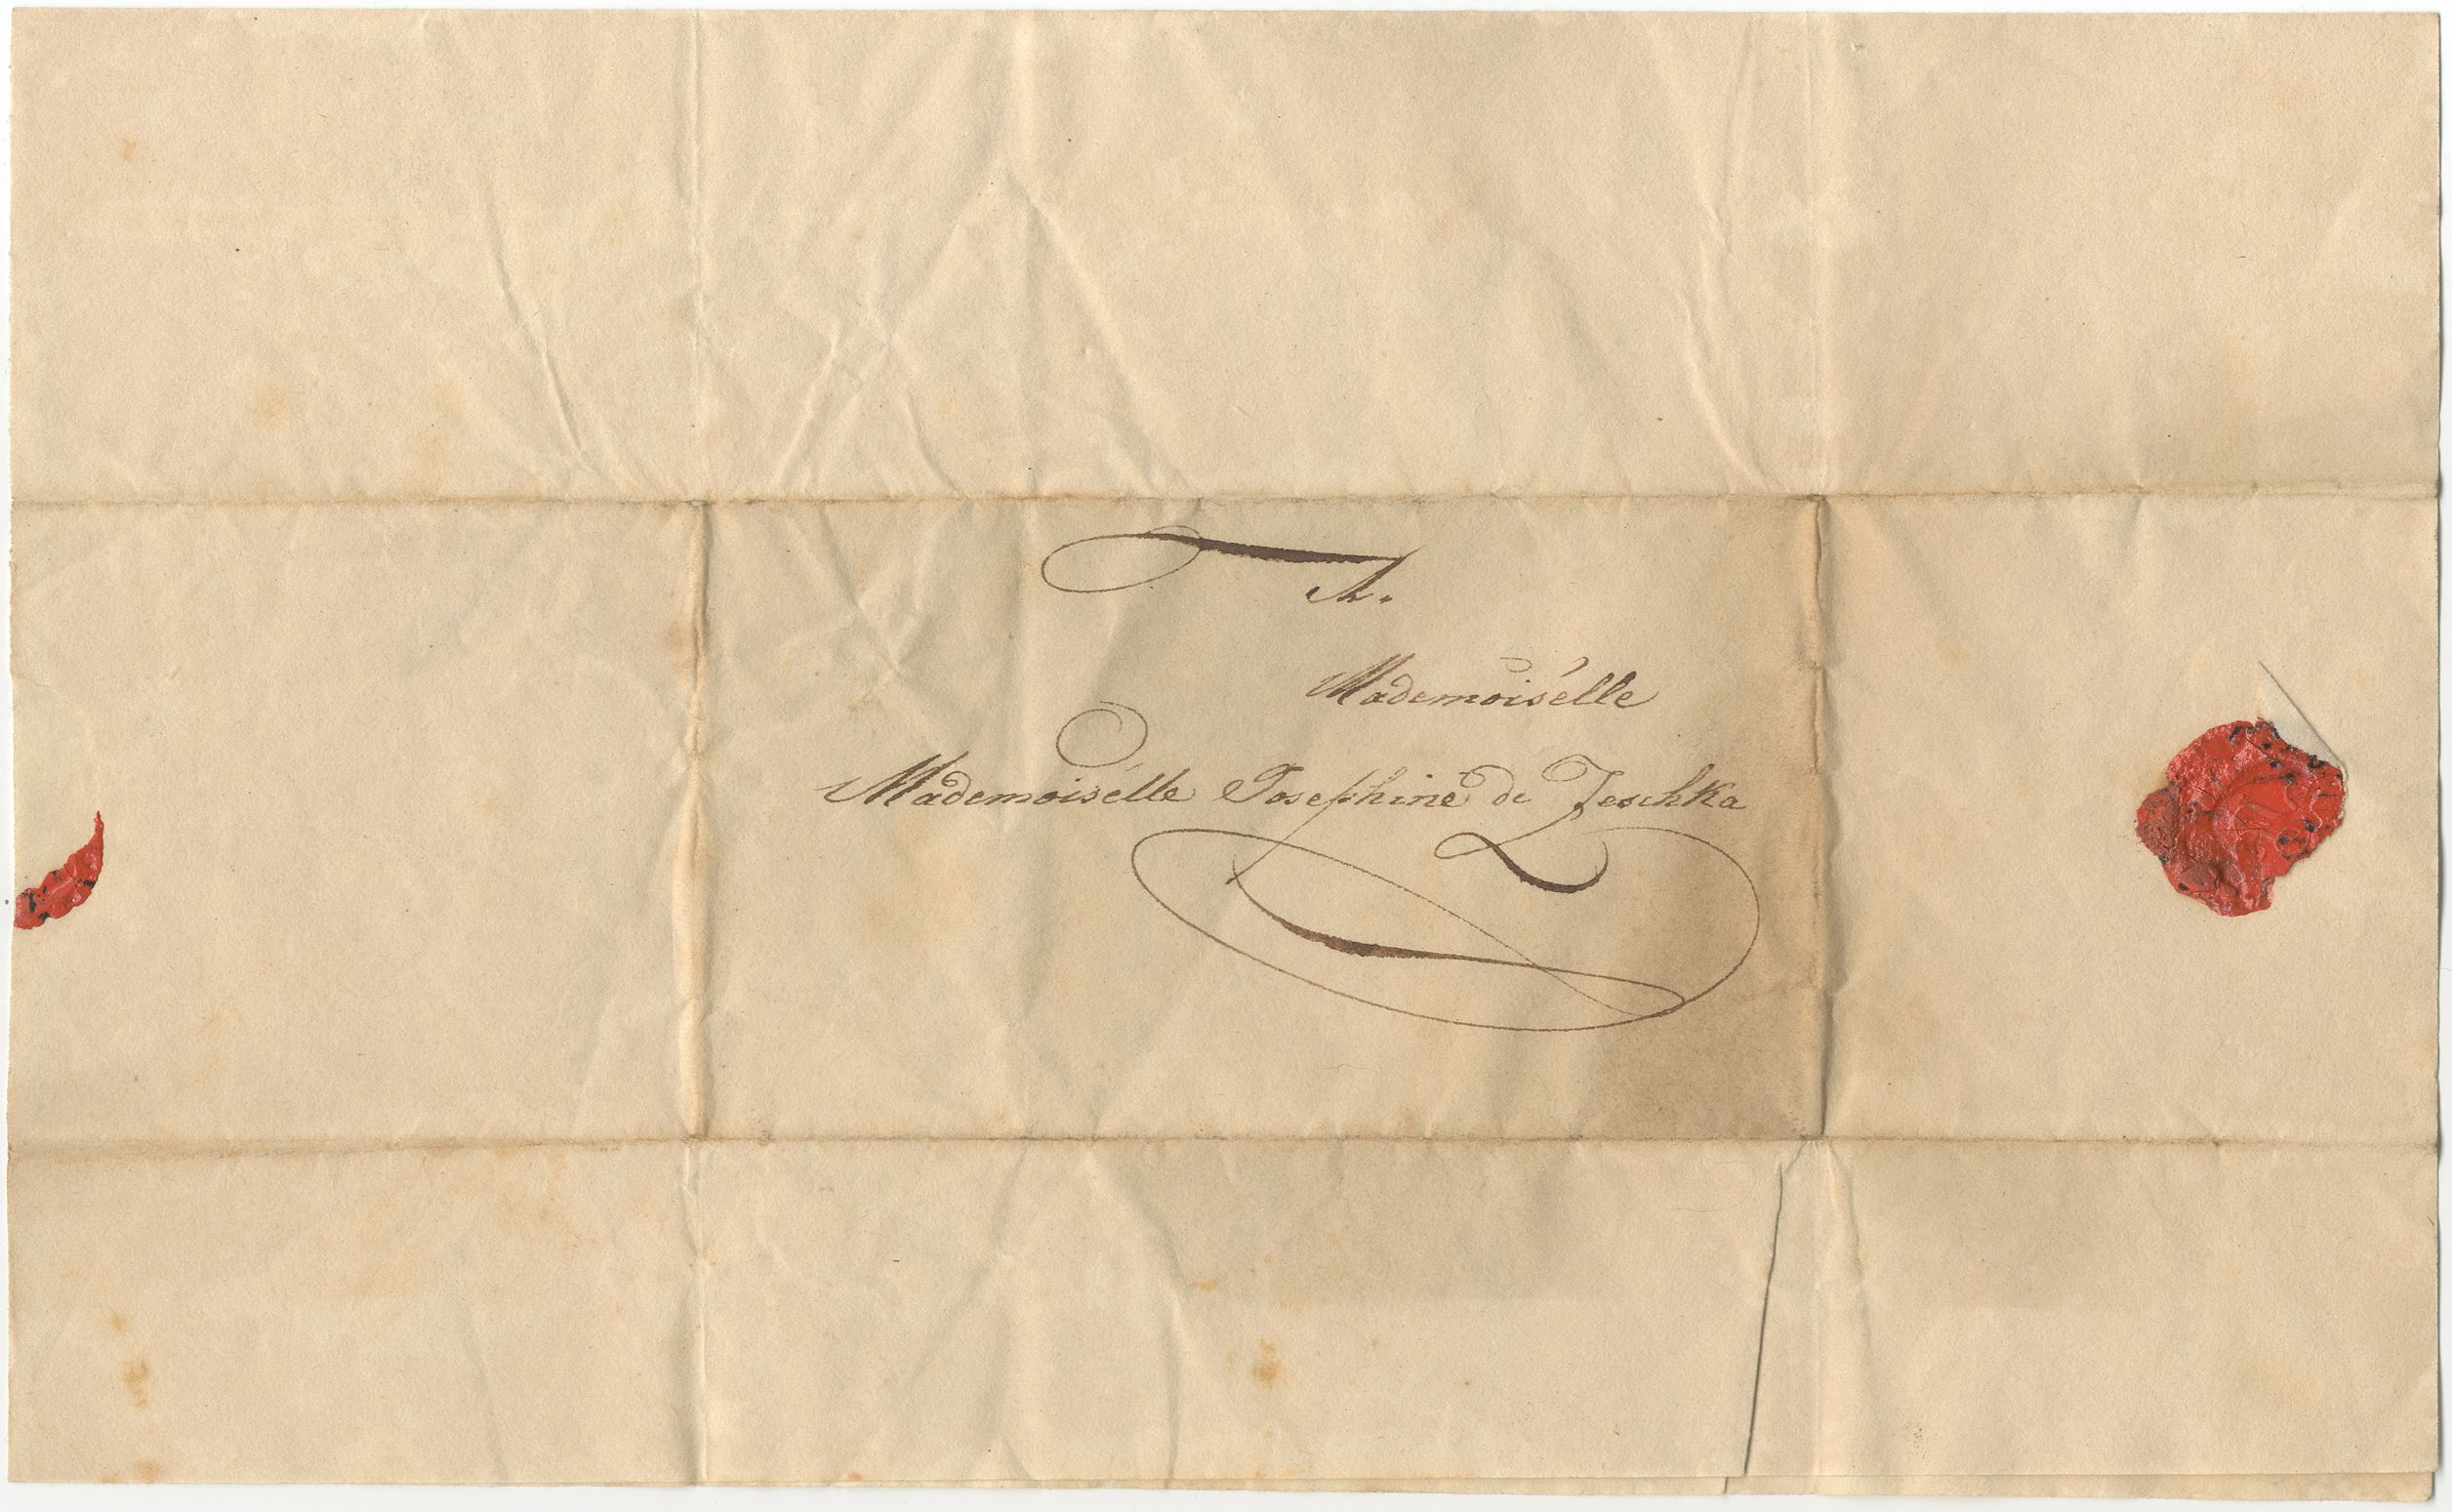 A.
Mademoisélle
Mademoisélle Josephine de Jeschka